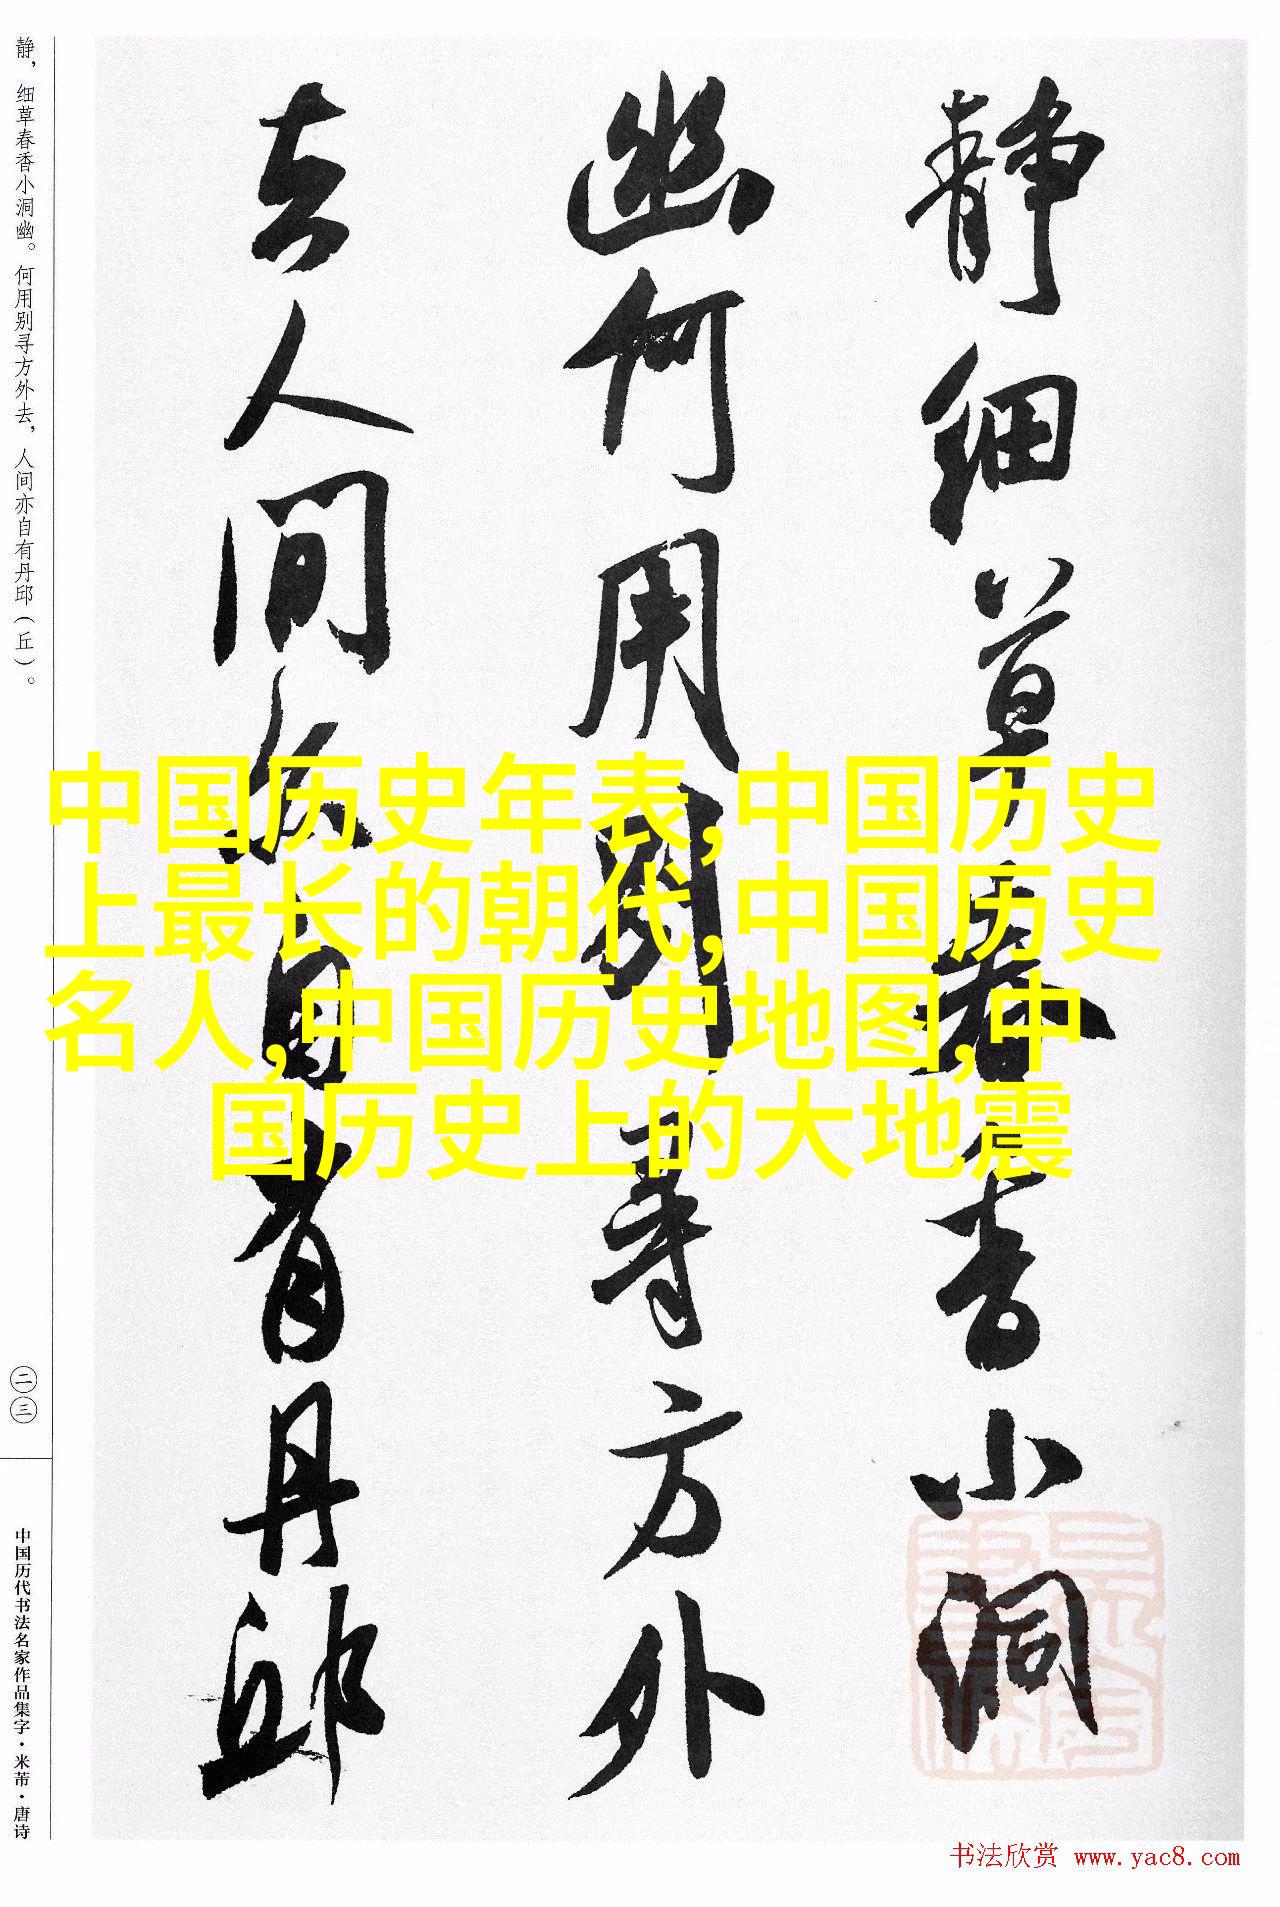 静细草春香小洞
幽何用别寻方外
去人间亦自有丹邱
静，细草春香小洞幽。何用别寻方外去，人间亦自有丹邱（丘）。
二三
中国历代书法名家作品集字·米芾·唐诗
中国历史年表,中国历史
上最长的朝代,中国历史
名人,中国历史地图,中
国历史上的大地震
书法欣赏 www.yac8.com